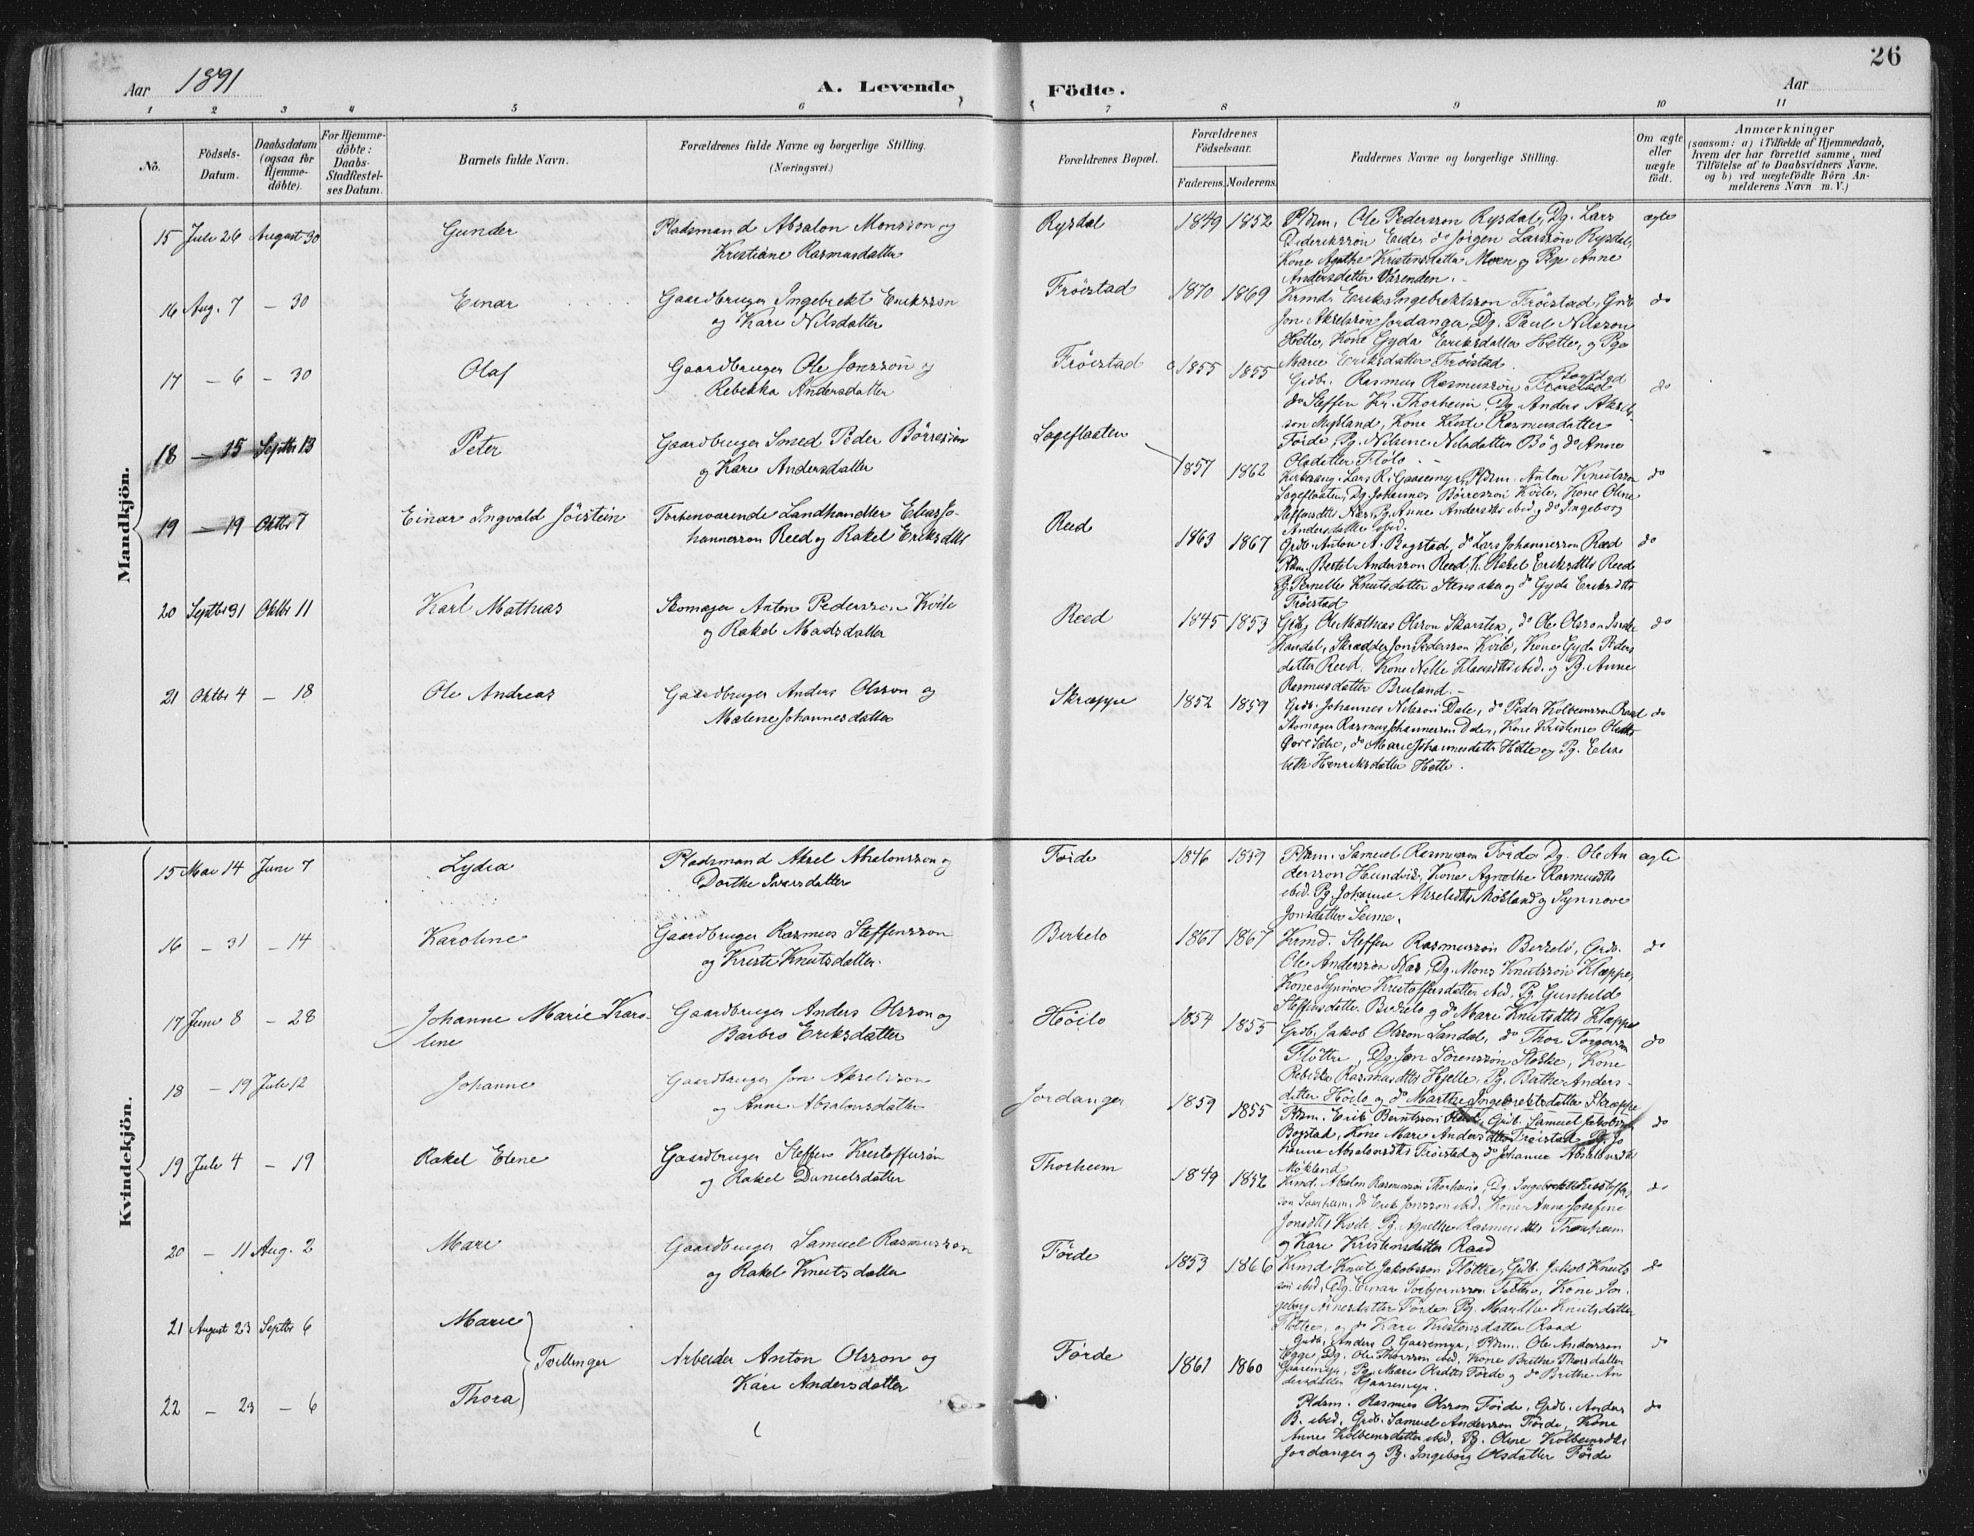 26
Aar 1891
A. Levende
Födte.
Aar
1 2 3 4 5 6 7 8 9 10 11
No.
Födsels-Datum.
Daabsdatum (ogsaa for Hjemmedöbte).
For Hjemmedöbte: Daabs-Stadfæstelses Datum.
Barnets fulde Navn.
Forældrenes fulde Navne og borgerlige Stilling.
(Næringsvei.)
Forældrenes Bopæl.
Forældrenes Födselsaar.
Faderens. Moderens.
Faddernes Navne og borgerlige Stilling.
Om ægte eller uægte födt.
Anmærkninger
(saasom: a) i Tilfælde af Hjemmedaab,
hvem der har forrettet samme, med
Tilföielse af to Daabsvidners Navne,
og b) ved uægtefödte Börn An-
melderens Navn m. V.)
Mandkjön.
15 Juli 26 August 30 Gunder Pladsmand Absalon Monsson og
Kristiane Rasmusdatter
Rysdal 1849 1852 Pldsm. Ole Pedersson Rysdal, Dg. Lars
Dideriksson Eide, do Jörgen Larsson Rysdal,
Kone Agathe Kristensdatter Moen og Pige Anne
Andersdatter Varenden.
ægte
16 Aug. 7 – 30 Einar Gaardbruger Ingebrekt Eriksson
og Kari Nilsdatter
Fröistad 1870 1869 Krmd. Erik Ingebrektsson Fröistad, Grdb.
Jon Akselsson Jordanger, Dg. Paul Nilsson
Hetle, Kone Gyda Eriksdatter Hetle, og Pge
Marie Eriksdatter Fröistad.
do
17 – 6 – 30 Olaf Gaardbruger Ole Jonsson og
Rebekka Andersdatter
Fröistad 1855 1855 Grdb. Rasmus Rasmusson Bogstad
do Steffen Kr. Thorheim, Dg. Anders Aksels-
son Mykland, Kone Kristi Rasmusdatter
Förde, Pg. Nilsine Nilsdatter Bö og do Anne
Olsdatter Flölo
do
18 – 15 Septbr 13 Peter Gaardbruger Smed Peder Börresson
og Kari Andersdatter
Sageflaaten 1857 1862 Kirkesang. Lars R. Gaasemyr, Pldsm. Anton Knutsson
Sageflaaten, Dg. Johannes Börresson Kvile, Kone Oline
Steffensdtr Næs, Pg. Anne Andersdtr ibid. og do Ingeborg
Andersdatter ibid.
do
19 – 19 Oktbr 7 Einar Ingvald Jöistein Forhenværende Landhandler Elias Jo-
hannesson Reed og Rakel Eriksdtr
Reed 1863 1867 Grdb. Anton A. Bogstad, do Lars Johannesson Reed
Pldsm. Bertel Andersson Reed, K. Rakel Eriksdtr Reed
Pg. Pernille Knutsdatter Stensaker og do Gyda Eriksdtr
Fröistad
do
20 Septbr 31 Oktbr 11 Karl Mathias Skomager Anton Pedersson Kvile
og Rakel Madsdatter
Reed 1845 1853 Grdb. Ole Mathias Olsson Skarsten, do Ole Olsson Indre
Handal, Skrædder Jon Pedersson Kvile, Kone Gyda Peders
datter Reed, Kone Nille Klausdtr ibid. og Pg. Anne
Rasmusdatter Bruland.
do
21 Oktbr 4 – 18 Ole Andreas Gaardbruger Anders Olsson og
Malene Johannesdatter
Skræppe 1852 1859 Grdb. Johannes Nilsson Dale, do Peder Kolbeinsson Raad
Skomager Rasmus Johannesson Dale, Kone Kristense Olsdtr
Sætre, do Marie Johannesdatter Hetle og Pg. Elisa
beth Henriksdatter Hetle.
do
Kvindekjön.
15 Mai 14 Juni 7 Lydia Pladsmand Aksel Absalonsson og
Dorthe Ivarsdatter
Förde 1846 1859 Pldsm. Samuel Rasmusson Förde, Dg. Ole An
dersson Hundvik, Kone Agnethe Rasmusdtr
ibid. Pg. Johanne Akselsdtr Mökland og Synnove
Jonsdatter Seime.
ægte
16 – 31 – 14 Karoline Gaardbruger Rasmus Steffensson
og Kristi Knutsdatter.
Birkelo 1861 1867 Krmd. Steffen Rasmusson Birkelo, Grdb.
Ole Andersson Næs, Dg. Mons Knutsson Klæppe,
Kone Synnove Kristoffersdatter ibid. Pg. Gunhild
Steffensdatter Birkelo og do Mari Knutsdtr Klæppe
do
17 Juni 8 – 28 Johanne Marie Karo-
line
Gaardbruger Anders Olsson og
Barbro Eriksdatter
Höilo 1854 1855 Grdb. Jakob Olsson Sandal, do Thor Torgersson
Flöttre, Dg. Jon Sörensson Støske, Kone
Rebekka Rasmusdtr Hjelle, Pg. Birthe Anders-
datter Höilo og do Marthe Ingebrektsdatter Skræppe
do
18 – 19 Juli 12 Johanne Gaardbruger Jon Akselsson
og Anne Absalonsdatter
Jordanger 1859 1855 Pldsm. Erik Berntsson Reed, Grdb. Samuel Jakobsson
Bogstad, Kone Mari Andersdtr Fröistad, Pg. Jo
hanne Absalonsdtr Fröistad og do Johanne Absalonsdtr
Mökland
do
19 Juli 4 – 19 Rakel Eline Gaardbruger Steffen Kristoffersson
og Rakel Danielsdatter
Thorheim 1849 1852 Krmd. Absalon Rasmusson Thorheim, Dg. Ingebrekt Kristoffers
son Saarheim, do Erik Jonsson ibid. Kone Anne Josefine
Jonsdtr Kvile, Pg. Agnethe Rasmusdtr Thorheim
og Kari Kristensdatter Raad
do
20 – 11 Aug. 2 Mari Gaardbruger Samuel Rasmusson
og Rakel Knutsdatter
Förde 1853 1866 Krmd Knut Jakobsson Flöttre, Grdb. Jakob Knuts
son ibid, Dg. Einar Torbjornsson Felden, Kone In-
geborg Arnesdatter Förde, Pg. Marthe Knutsdatter
Flöttre, og do Kari Kristensdatter Raad
do
21 August 23 Septbr 6 Marie
Tvillinger
Arbeider Anton Olsson og
Kari Andersdatter
Förde 1861 1860 Grdb. Anders O. Gaasemyr, Pldsm. Ole Andersson
Egge, Dg. Ole Thorsson ibid. Kone Brithe Thorsdatter
Gaasemyr, Pg. Mari Olsdtr Förde og do Brithe An
dersdatter Gaasemyr.
do
22 – 23 – 6 Thora
Pldsm. Rasmus Olsson Förde, Grdb. Anders
B. ibid, Grdb. Samuel Andersson Förde, Kone
Anne Kolbeinsdatter ibid, Pg. Oline Kolbeinsdtr
Jordanger og Pg. Ingeborg Olsdatter Förde
do